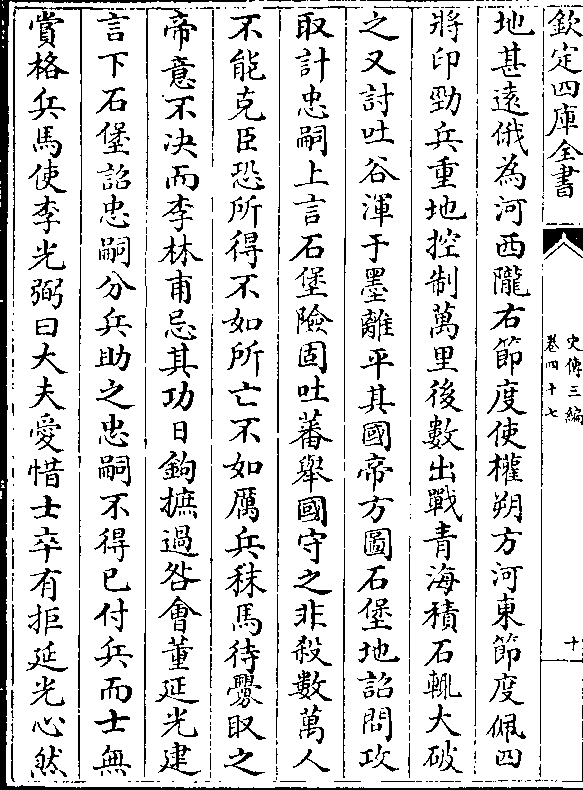 欽定四庫全書
史傳三編
卷四十七
十
地甚遠俄為河西隴右節度使權朔方河東節度佩四
將印勁兵重地控制萬里後數出戰青海積石輒大破
之又討吐谷渾于墨離平其國帝方圖石堡地詔問攻
取計忠嗣上言石堡險固吐蕃舉國守之非殺數萬人
不能克臣恐所得不如所亡不如厲兵秣馬待釁取之
帝意不決而李林甫忌其功日鉤摭過咎會董延光建
言下石堡詔忠嗣分兵助之忠嗣不得已付兵而士無
賞格兵馬使李光弼曰大夫愛惜士卒有拒延光心然